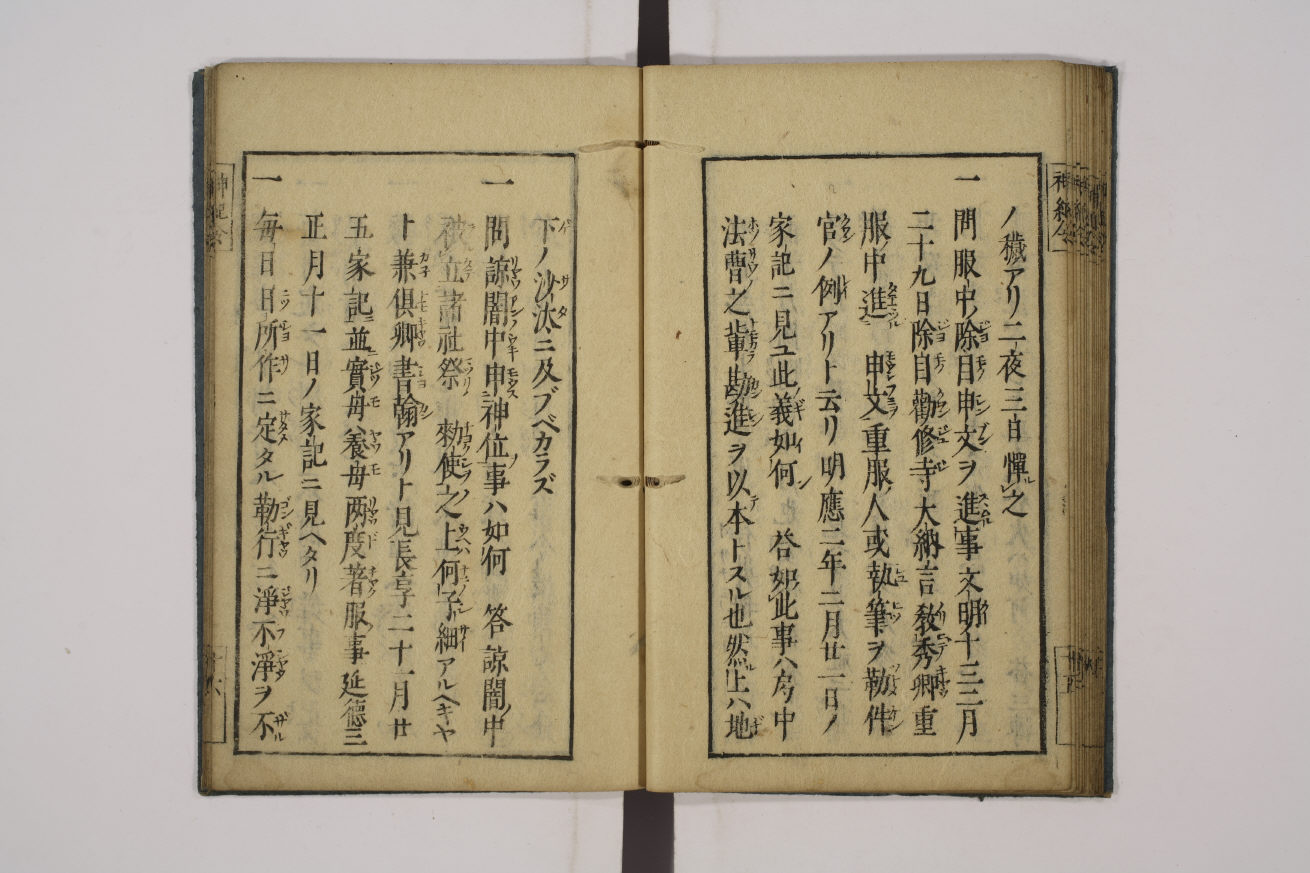 ノ穢アリ二夜三日憚之
一 問服中除目申文ヲ進事文明十三三月
二十九日除目勸修寺大納言教秀卿重
服中進 申文重服人或執筆ヲ勤仕
官ノ例アリト云リ明應二年二月廿一日ノ
家記ニ見ユ此義如何 答如此事ハ官中
法曹之輩勘進ヲ以本トスル也然上ハ地
下ノ沙汰ニ及ブベカラズ
一 問諒闇中申神位事ハ如何 答諒闇中
被立諸社祭 勅使之上何子細アルヘキヤ
ト兼倶卿書翰アリト見長享二十一月廿
五家記並實母養母两度著服事延德三
正月十一日ノ家記ニ見ヘタリ
一 毎日日所作ニ定タル勤行ニ淨不淨ヲ不